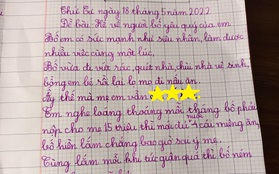 Thứ tư ngày 18 tháng 5 năm 2022
Đề bài: Kể về người bố yêu quý của em
Bố em có sức mạnh như siêu nhân, làm được
nhiều việc cùng một lúc.
Bố vừa đi vắt sác, quét nhà, chùi nhà vệ sinh,
bồng em bé rồi lại lo mo đi nấu ăn.
ấy thế mà mẹ em vẫn
Em nghe loáng thoáng mỗi tháng bố phải
nộp cho mẹ 15 triệu thì mới được 4 câu mừng ăn,
bố hiền lắm chẳng bao giờ sau ý mẹ.
Cũng lắm mỗi khi tức giận quá thì bố ném